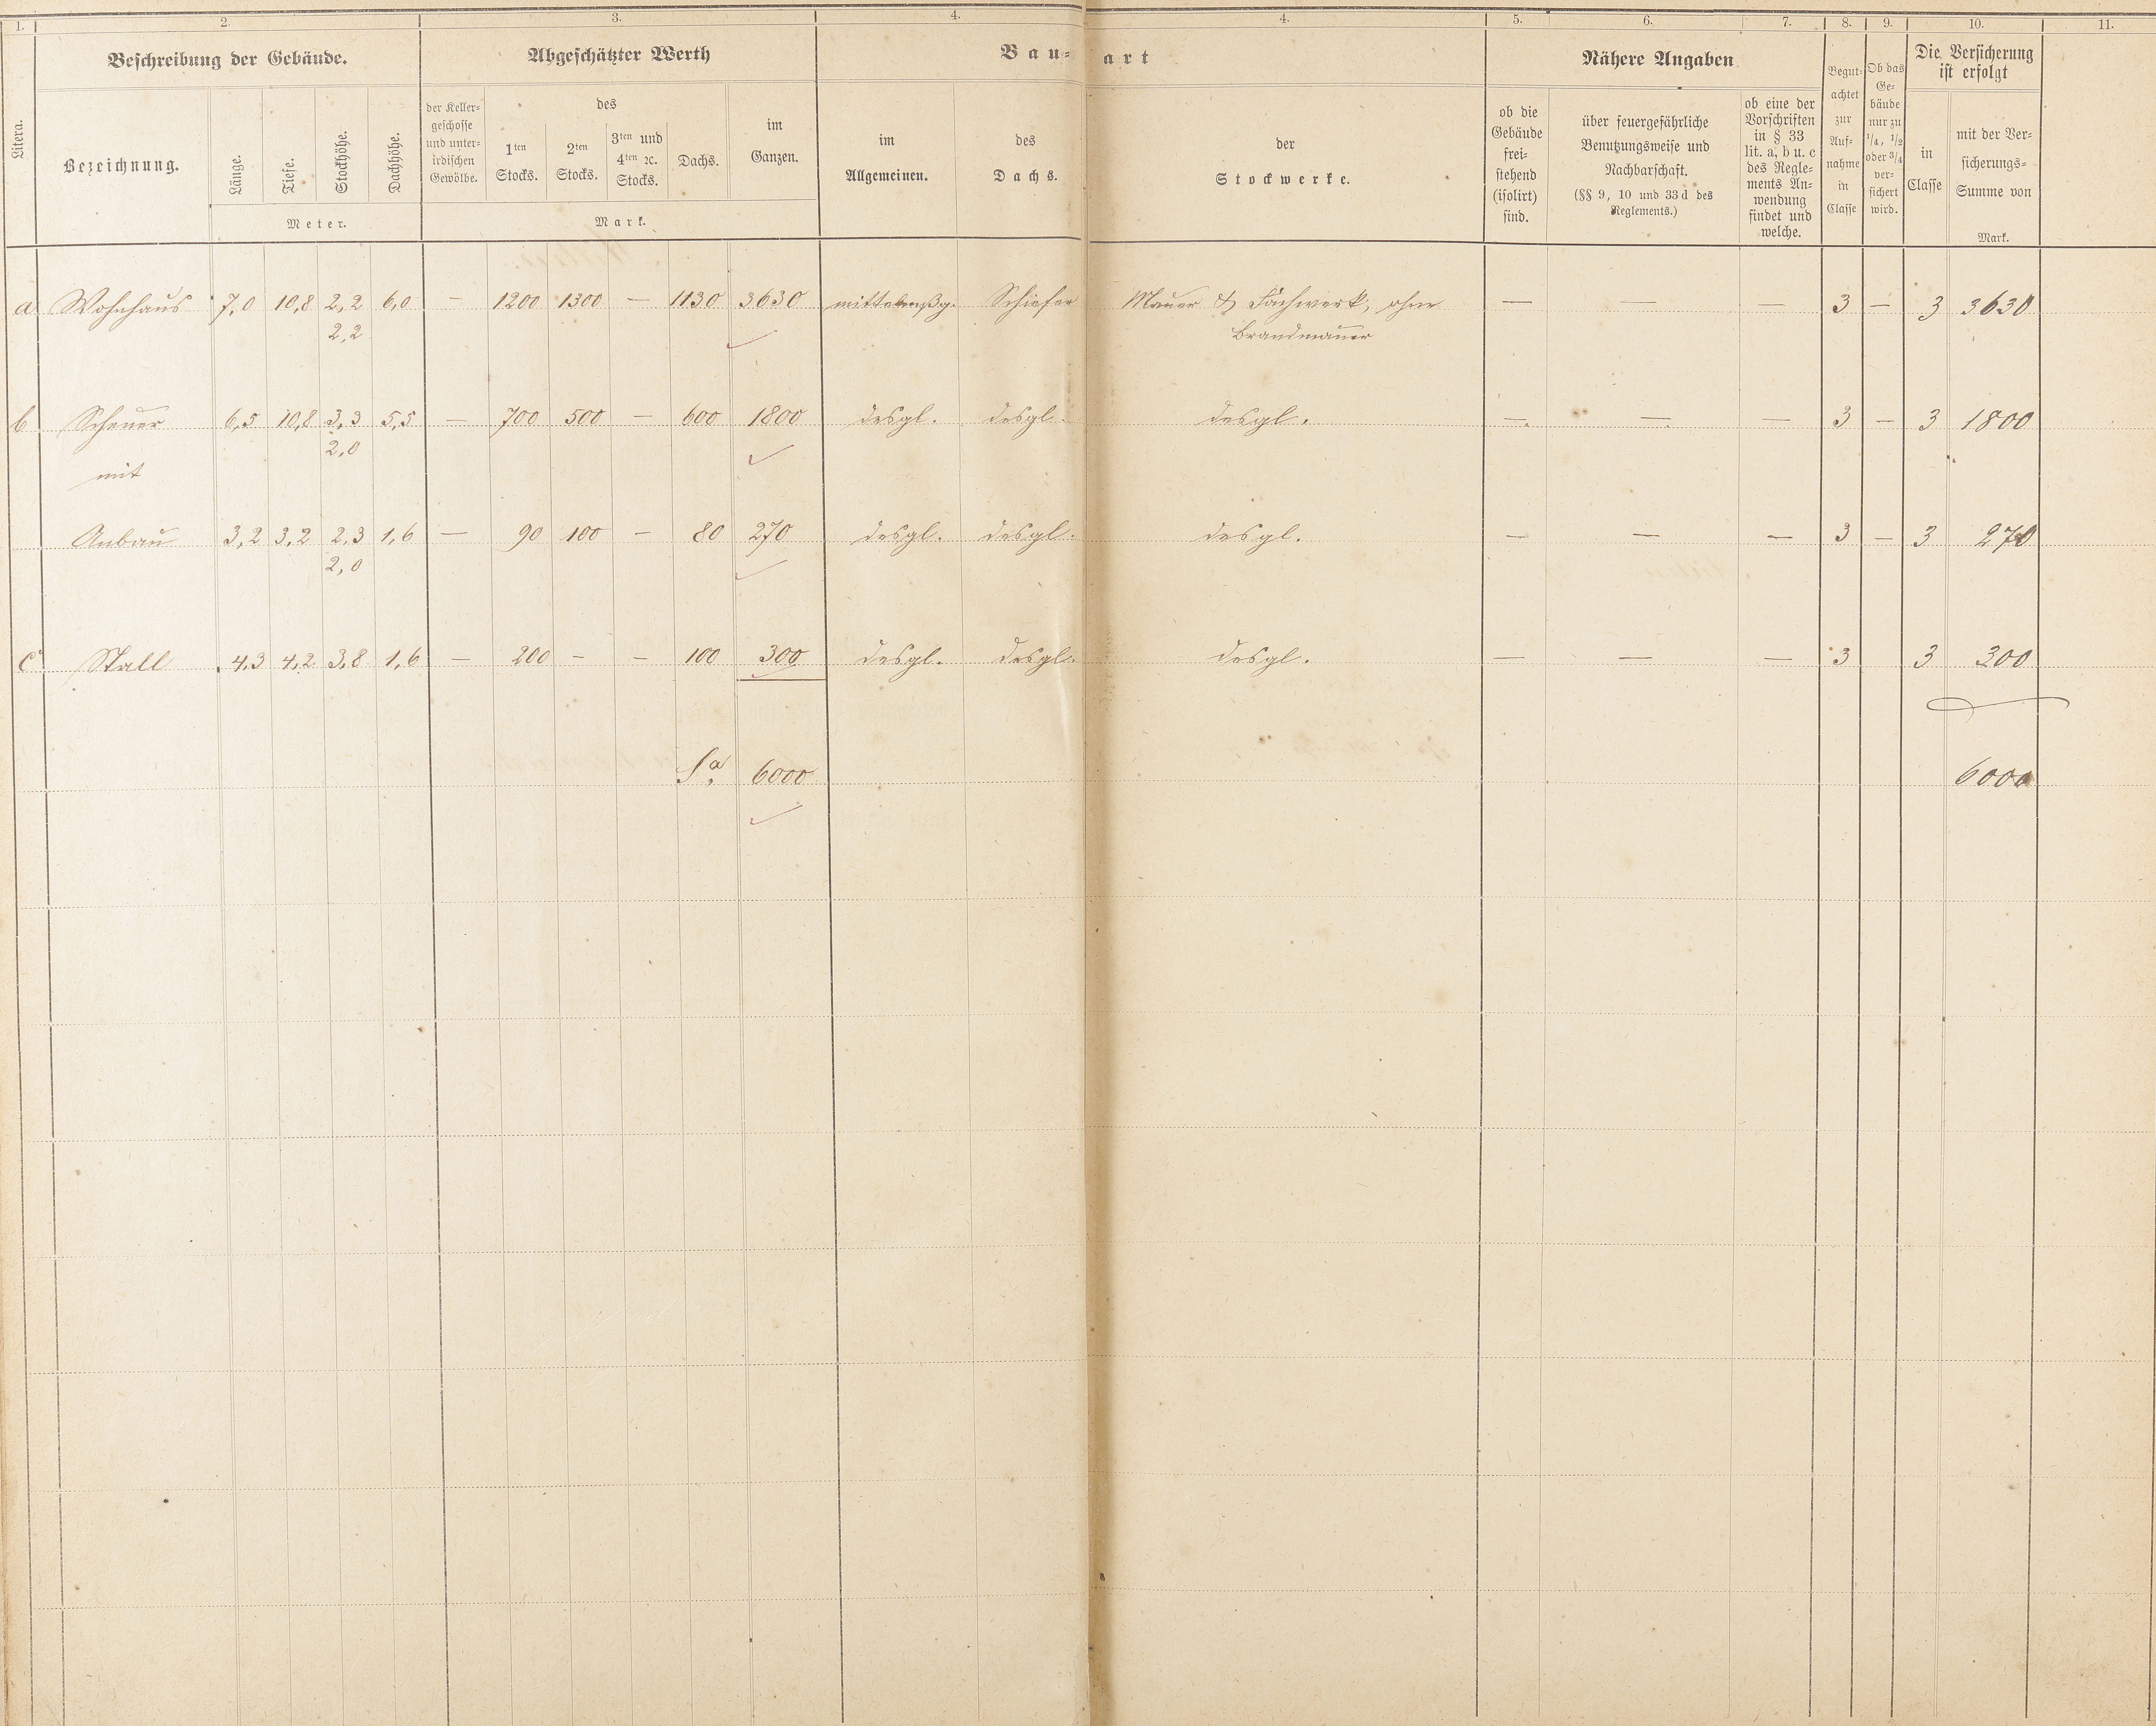 1. 2. 3. 4. 4. 5. 6. 7. 8. 9. 10. 11.
Litera.
Beschreibung der Gebäude.
Bezeichnung.
Länge. Tiefe. Stockhöhe. Dachhöhe.
Meter.
Abgeschätzter Werth
der Keller-
geschosse
und unter-
irdischen
Gewölbe.
des
1ten
Stocks.
2ten
Stocks.
3ten und
4ten ꝛc.
Stocks.
Dachs.
im
Ganzen.
Mark.
Bau-art
im
Allgemeinen.
des
Dachs.
der
Stockwerke.
Nähere Angaben
ob die
Gebäude
frei-
stehend
(isolirt)
sind.
über feuergefährliche
Benutzungsweise und
Nachbarschaft.
(§§ 9, 10 und 33d des
Reglements.)
ob eine der
Vorschriften
in § 33
lit. a, b u. c
des Regle-
ments An-
wendung
findet und
welche.
Begut-
achtet
zur
Auf-
nahme
in
Classe
Ob das
Ge-
bäude
nur zu
1/4, 1/2
oder 3/4
ver-
sichert
wird.
Die Versicherung
ist erfolgt
in
Classe
mit der Ver-
sicherungs-
Summe von
Mark.
a Wohnhaus 7,0 10,8 2,2 6,0 — 1200 1300 — 1130 3630 mittelmßg. Schiefer Mauer & Fachwerk, ohne — — — 3 — 3 3630
2,2 Brandmauer
b Scheuer 6,5 10,8 3,3 5,5 — 700 500 — 600 1800 desgl. desgl. desgl. — — — 3 — 3 1800
2,0
mit
Anbau 3,2 3,2 2,3 1,6 — 90 100 — 80 270 desgl. desgl. desgl. — — — 3 — 3 270
2,0
c Stall 4,3 4,2 3,8 1,6 — 200 — — 100 300 desgl. desgl. desgl. — — — 3 3 300
Sa. 6000 6000